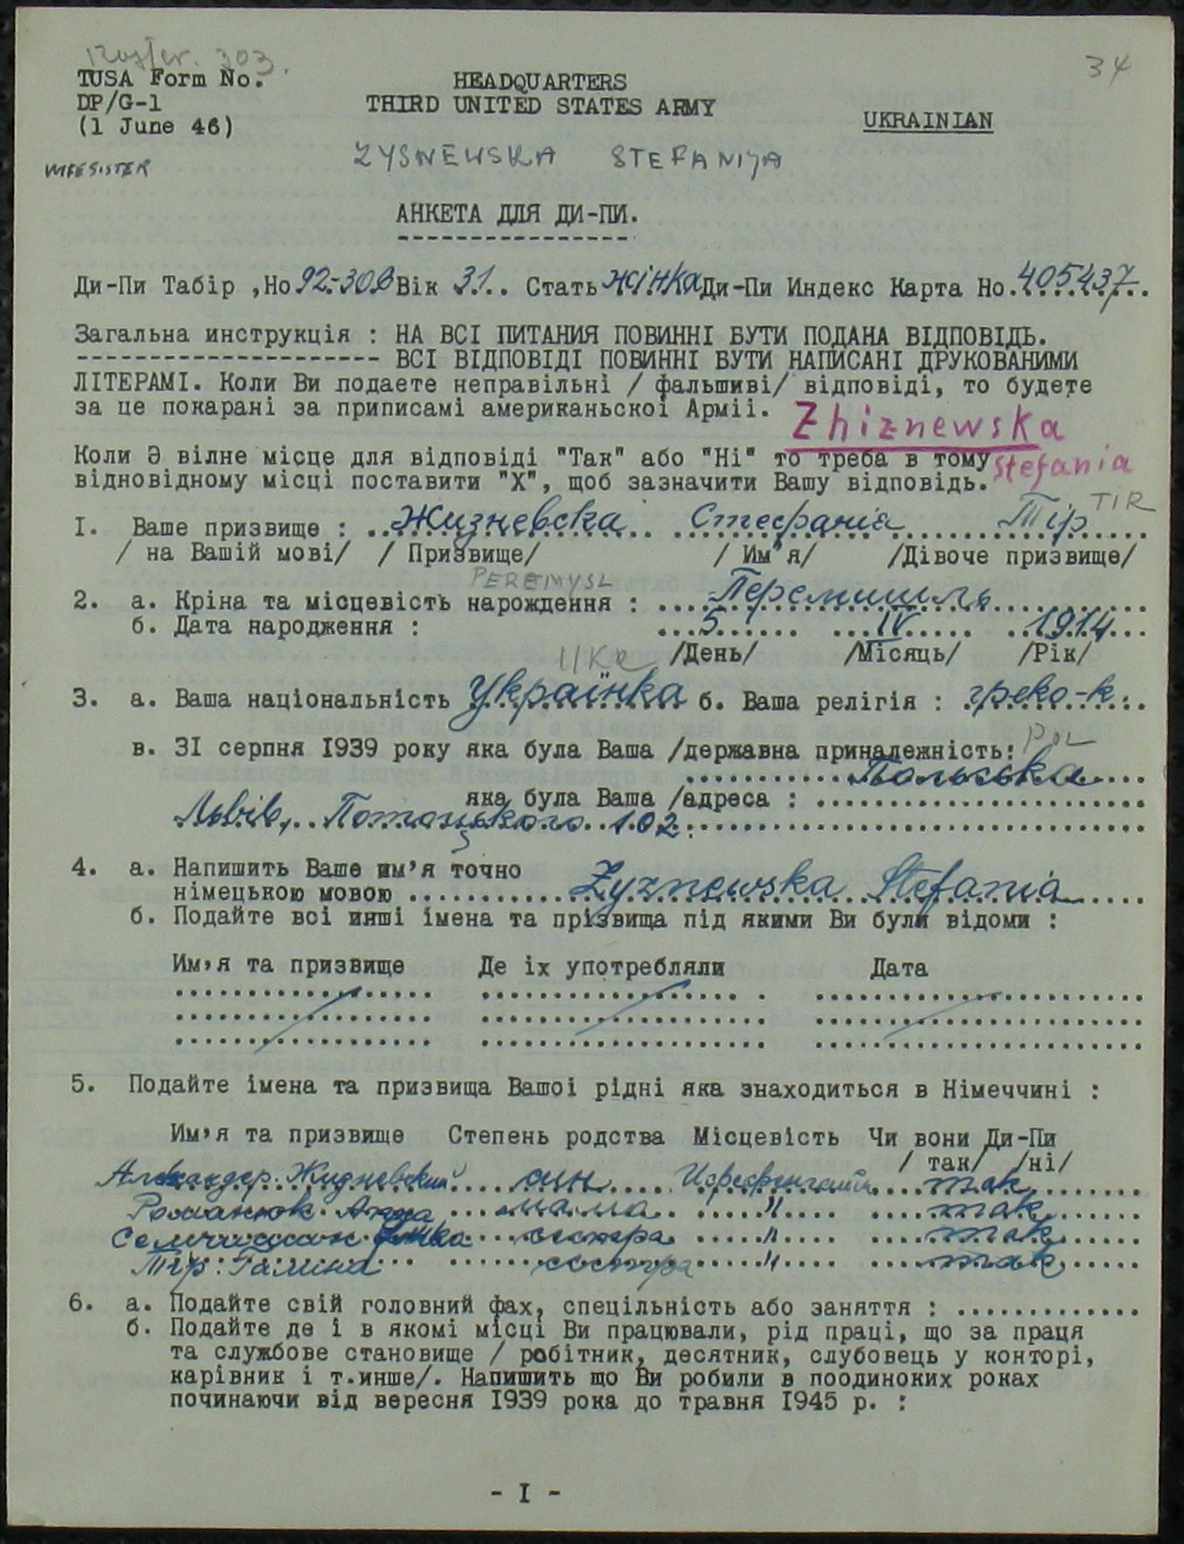 303.
34
TUSA Form No.
DP/G-1
(1 June 46)
HEADQUARTERS
THIRD UNITED STATES ARMY
UKRAINIAN
ZYSNEWSKA STEFANIJA
АНКЕТА ДЛЯ ДИ-ПИ.
Ди-Пи Табір ,Но 92-303 Вік 31.. Стать жінка Ди-Пи Индекс Карта Но.405437.
Загальна инструкція : НА ВСІ ПИТАНИЯ ПОВИННІ БУТИ ПОДАНА ВІДПОВІДЬ.
--------------------- ВСІ ВІДПОВІДІ ПОВИННІ БУТИ НАПИСАНІ ДРУКОВАНИМИ
ЛІТЕРАМІ. Коли Ви подаете неправільні / фальшиві/ відповіді, то будете
за це покарані за приписамі американьскоі Арміі.
Zhiznewska
Коли Э вілне місце для відповіді "Так" або "Ні" то треба в тому
Stefania
відновідному місці поставити "X", щоб зазначити Вашу відповідь.
I. Ваше призвище : Жизневска Стефанія Тір TIR
/ на Вашій мові/ / Призвище/ / Им'я/ /Дівоче призвище/
PEREMYSL
2. а. Кріна та місцевість нарождення : Перемишль
б. Дата народження : 5 IV 1914
UKR /День/ /Місяць/ /Рік/
3. а. Ваша національність Українка б. Ваша релігія : греко-к.
в. 3I серпня I939 року яка була Ваша /державна приналежність: POL
Польська
яка була Ваша /адреса :
Львів, Потоцького 102.
4. а. Напишить Ваше им'я точно
німецькою мовою Zyznewska Stefania
б. Подайте всі инші імена та прізвища під якими Ви були відоми :
Им,я та призвище Де іх употребляли Дата
5. Подайте імена та призвища Вашоі рідні яка знаходиться в Німеччині :
Им,я та призвище Степень родства Місцевість Чи вони Ди-Пи
/ так/ /ні/
Александер Жидневский син так
Романюк Анна мама " так
сестра " так
Тір Галина сестра " так
6. а. Подайте свій головний фах, спецільність або заняття :
б. Подайте де і в якомі місці Ви працювали, рід праці, що за праця
та службове становище / робітник, десятник, слубовець у конторі,
карівник і т.инше/. Напишить що Ви робили в поодиноких роках
починаючи від вересня I939 рока до травня I945 р. :
- I -